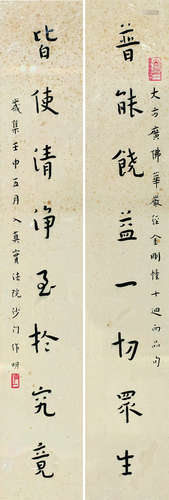 大方廣佛華嚴經金剛幢十迴向品句
普能饒益一切眾生
皆使清淨至於究竟
歲集壬申五月入真法院沙門